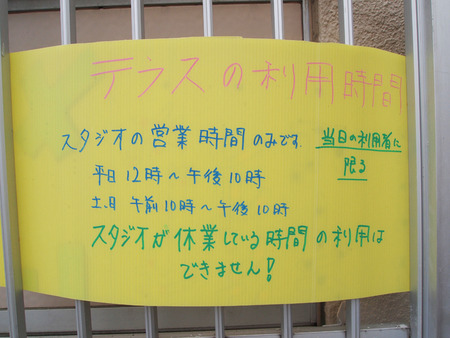 テラスの利用時間
スタジオの営業時間のみです. 当日の利用者に
限る
平日12時～午後10時
土、日 午前10時～午後10時
スタジオが休業している時間の利用は
できません!